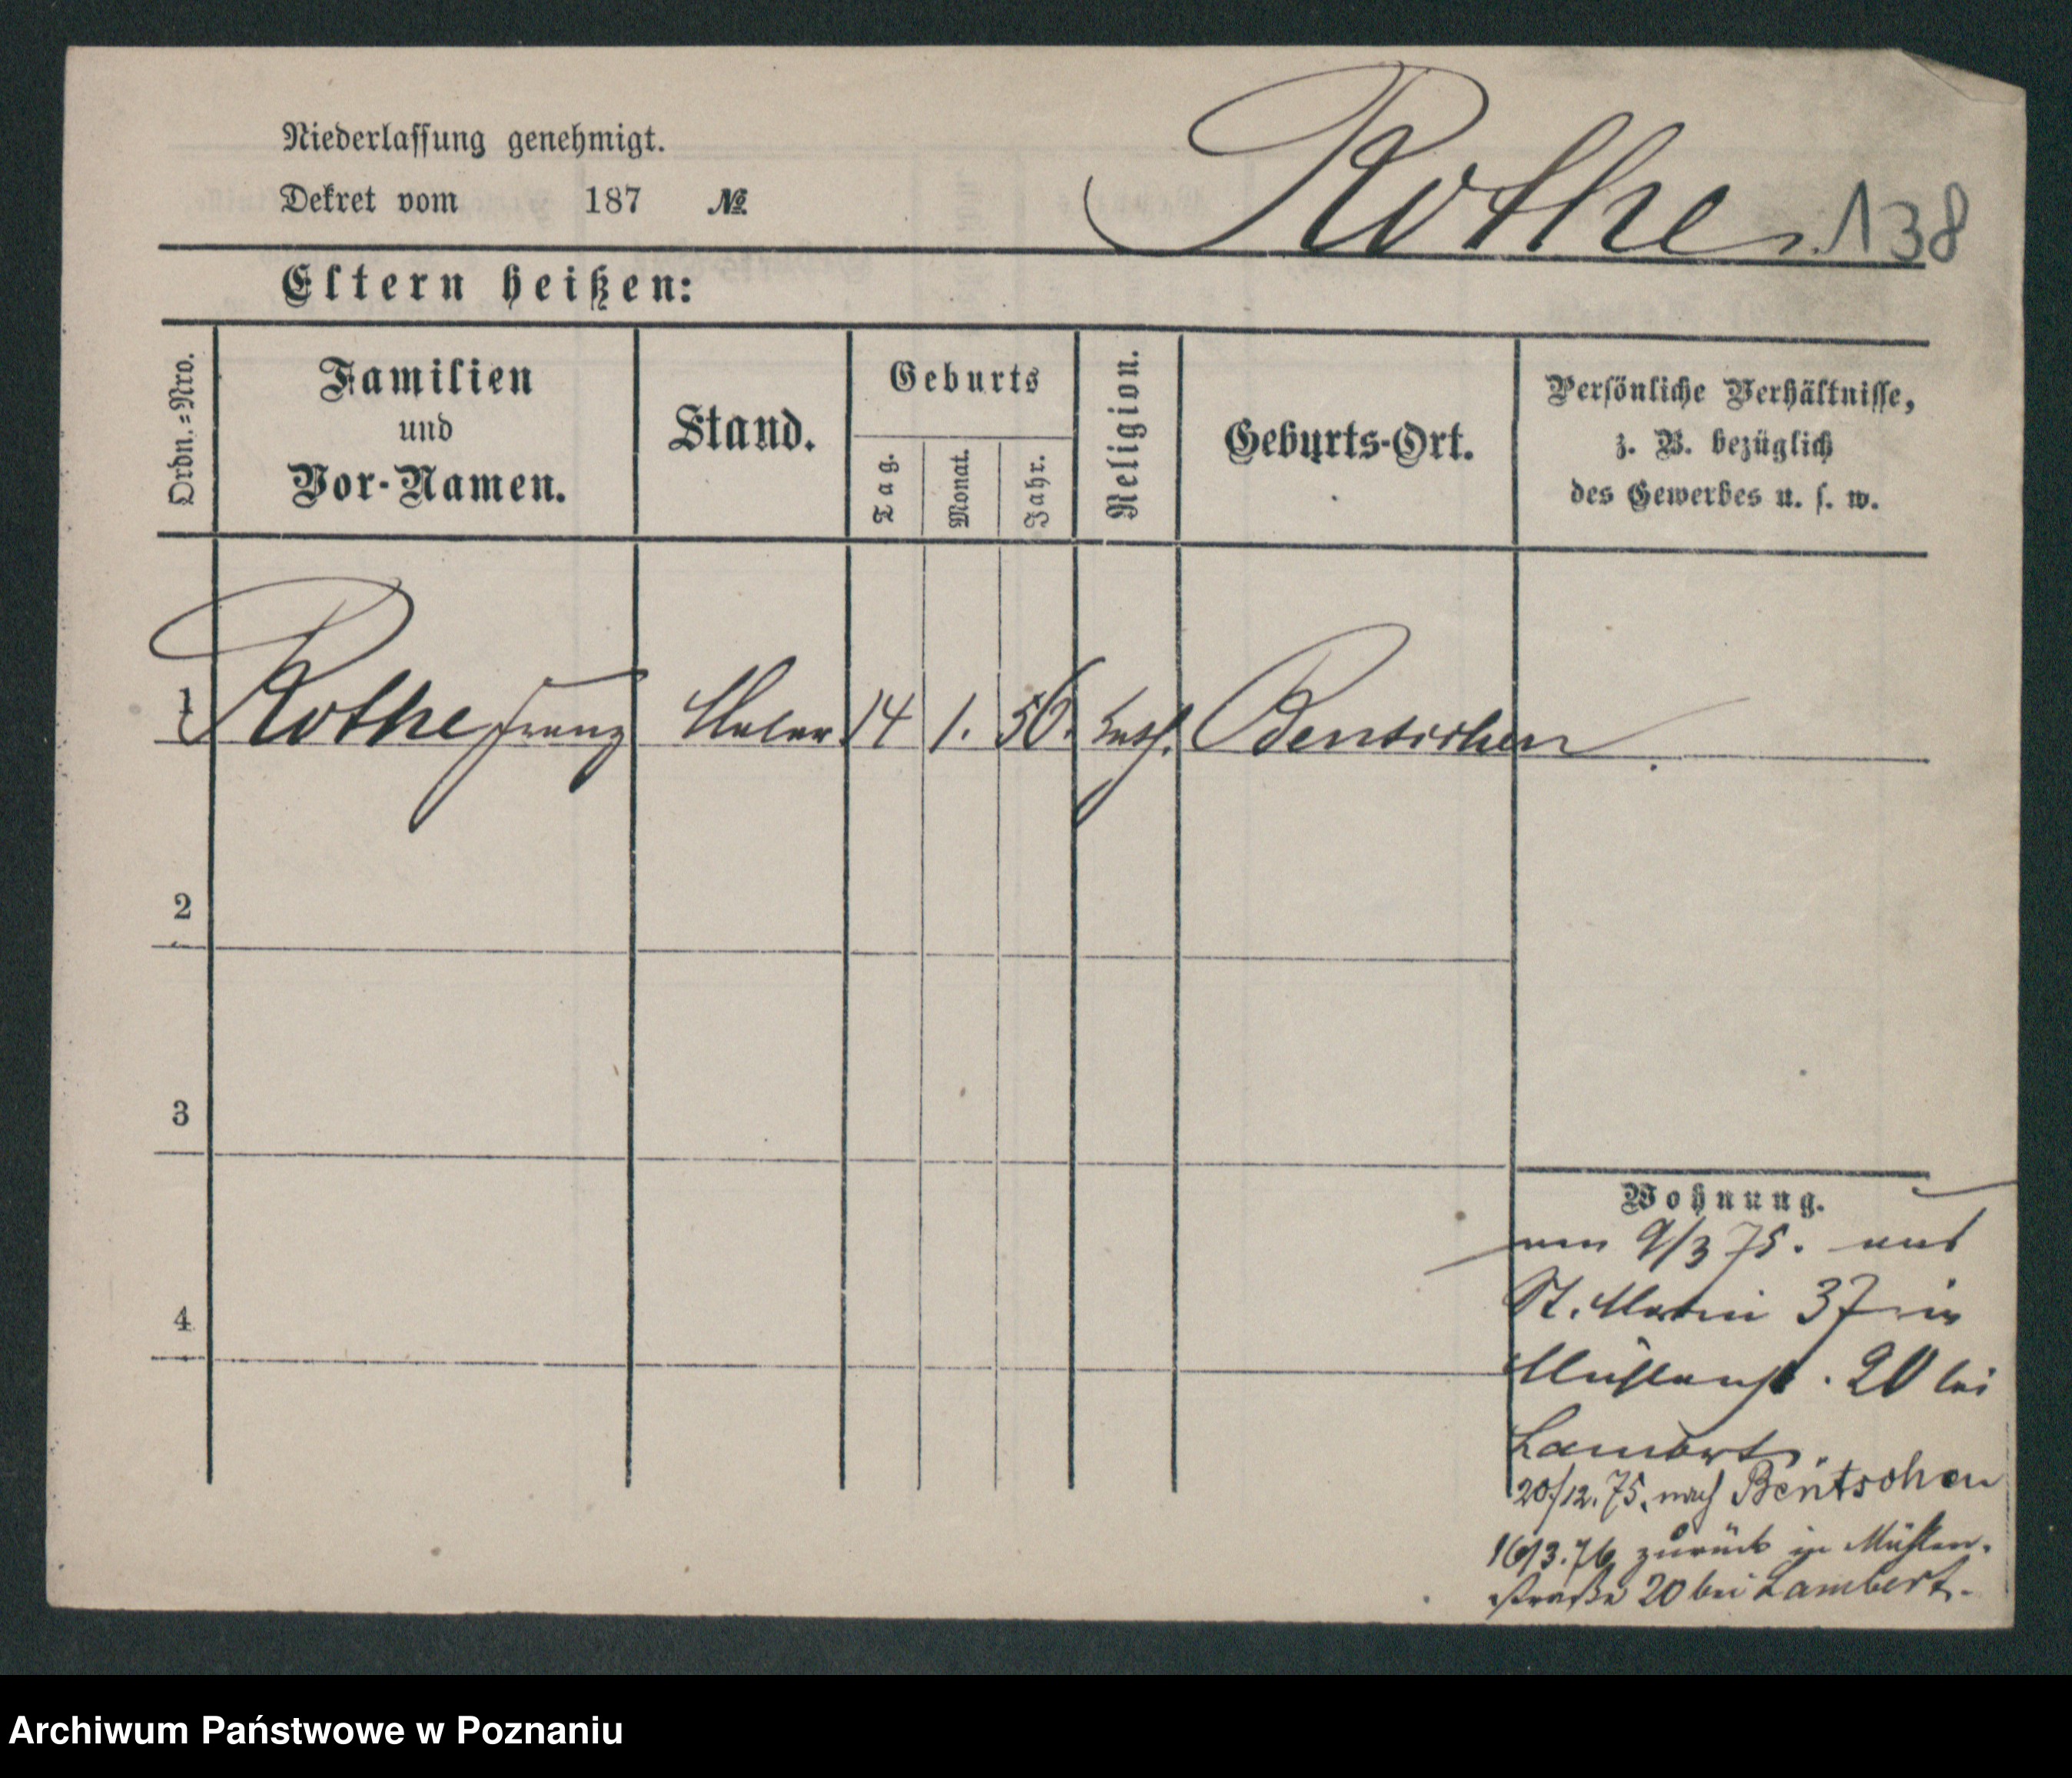 Niederlassung genehmigt.
Dekret vom 187 №
Rothe 138
Eltern heißen:
Ordn.=Nro.
Familien
und
Vor-Namen.
Stand.
Geburts
Tag.
Monat.
Jahr.
Religion.
Geburts-Ort.
Persönliche Verhältnisse,
z. B. bezüglich
des Gewerbes u. s. w.
1 Rothe Franz Maler 14 1. 56. kath. Bentschen
2
3
4
Wohnung.
9/3 75. aus
St. Martin 37 in
Mühlenst. 20 bei
Lambert
20/12.75. nach Bentschen
16/3.76 zurück in Mühlen-
straße 20 bei Lambert.
Archiwum Państwowe w Poznaniu